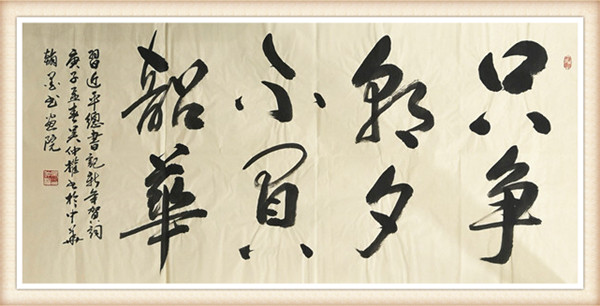 只争
朝夕
不負
韶華
習近平總書記新年賀詞
庚子孟春吴仲书於中華
翰墨书畫院